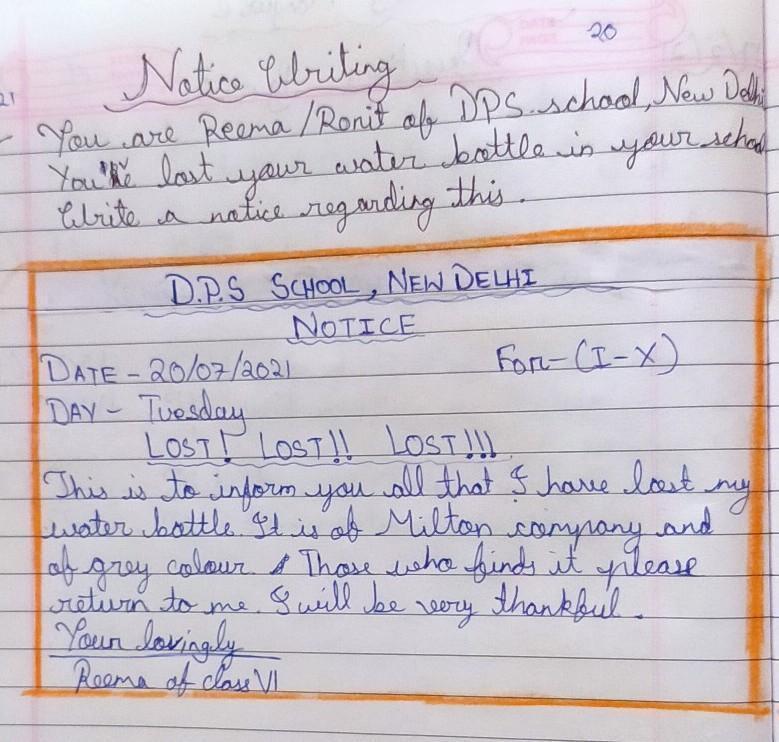 20
21
Notice Writing
You are Reema/Ronit of DPS school, New Delhi
You've lost your water bottle in your school
Write a notice regarding this.
D.P.S SCHOOL, NEW DELHI
NOTICE
DATE - 20/07/2021 For - (I-X)
DAY - Tuesday
LOST! LOST!! LOST!!!
This is to inform you all that I have lost my
water bottle. It is of Milton company and
of grey colour. Those who finds it please
return to me. I will be very thankful.
Your lovingly
Reema of class VI